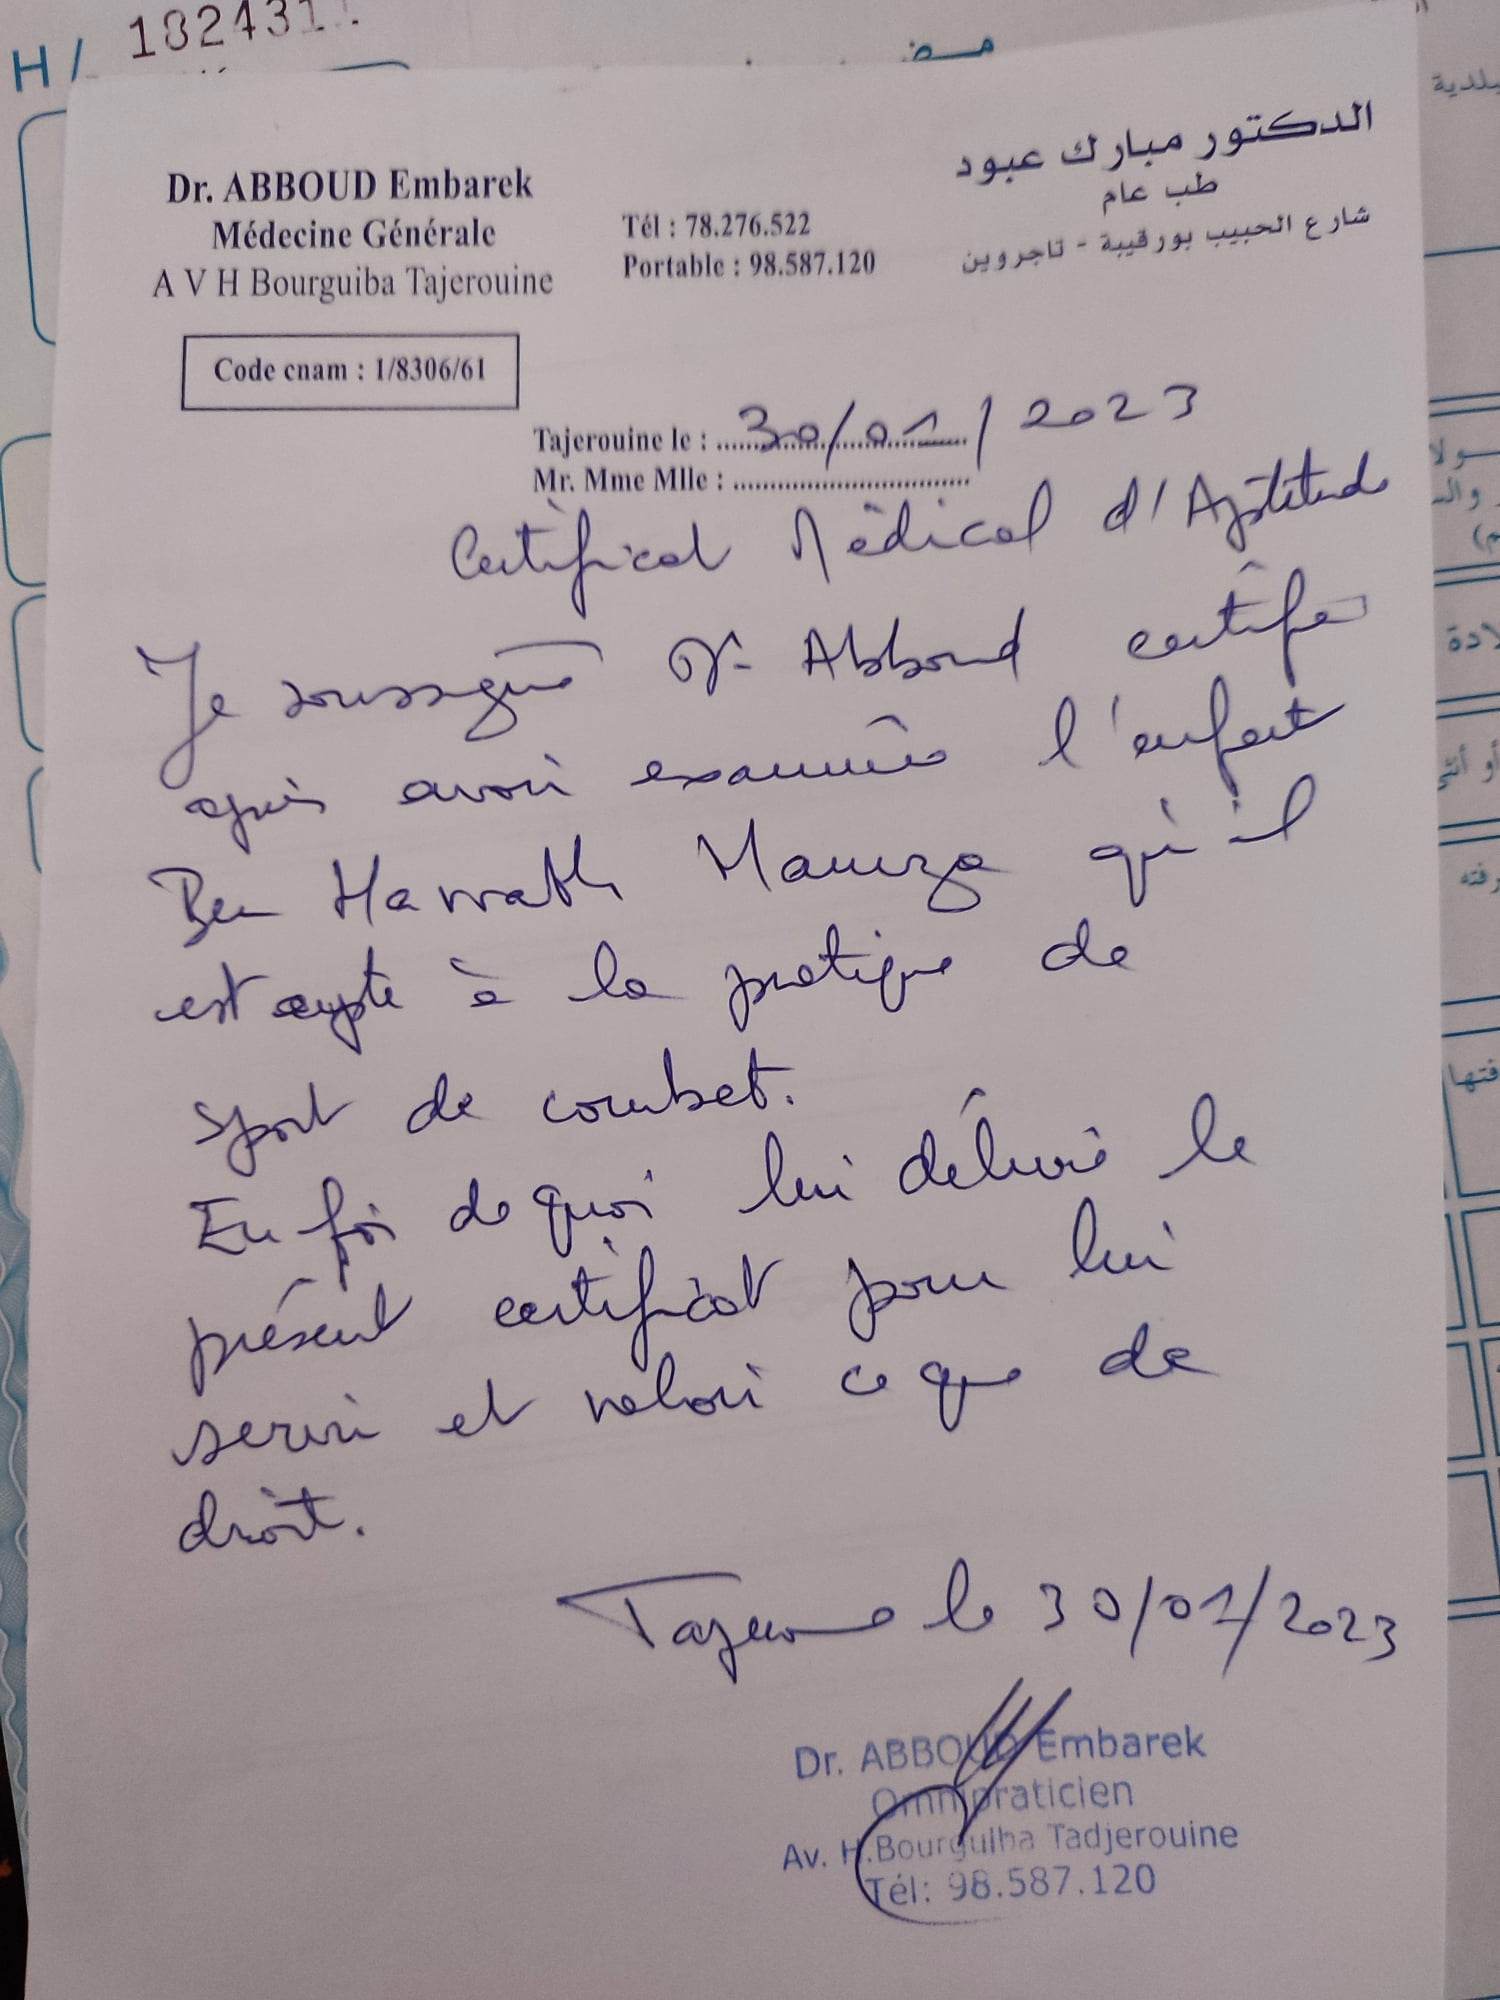 H / 182431
مض
Dr. ABBOUD Embarek
Médecine Générale
A V H Bourguiba Tajerouine
Tél : 78.276.522
Portable : 98.587.120
الدكتور مبارك عبود
طب عام
شارع الحبيب بورقيبة - تاجروين
Code cnam : 1/8306/61
Tajerouine le : 30/01/2023
Mr. Mme Mlle :
Certificat Médical d'Aptitude
Je soussigné Dr Abboud certifie
après avoir examinée l'enfant
Ben Harrath Hamza qu'il
est apte à la pratique de
sport de combat.
En foi de quoi lui délivré le
présent certificat pour lui
servir et valoir ce que de
droit.
Tajerouine le 30/01/2023
Dr. ABBOUD Embarek
Omnipraticien
Av. H.Bourguiba Tadjerouine
Tél: 98.587.120